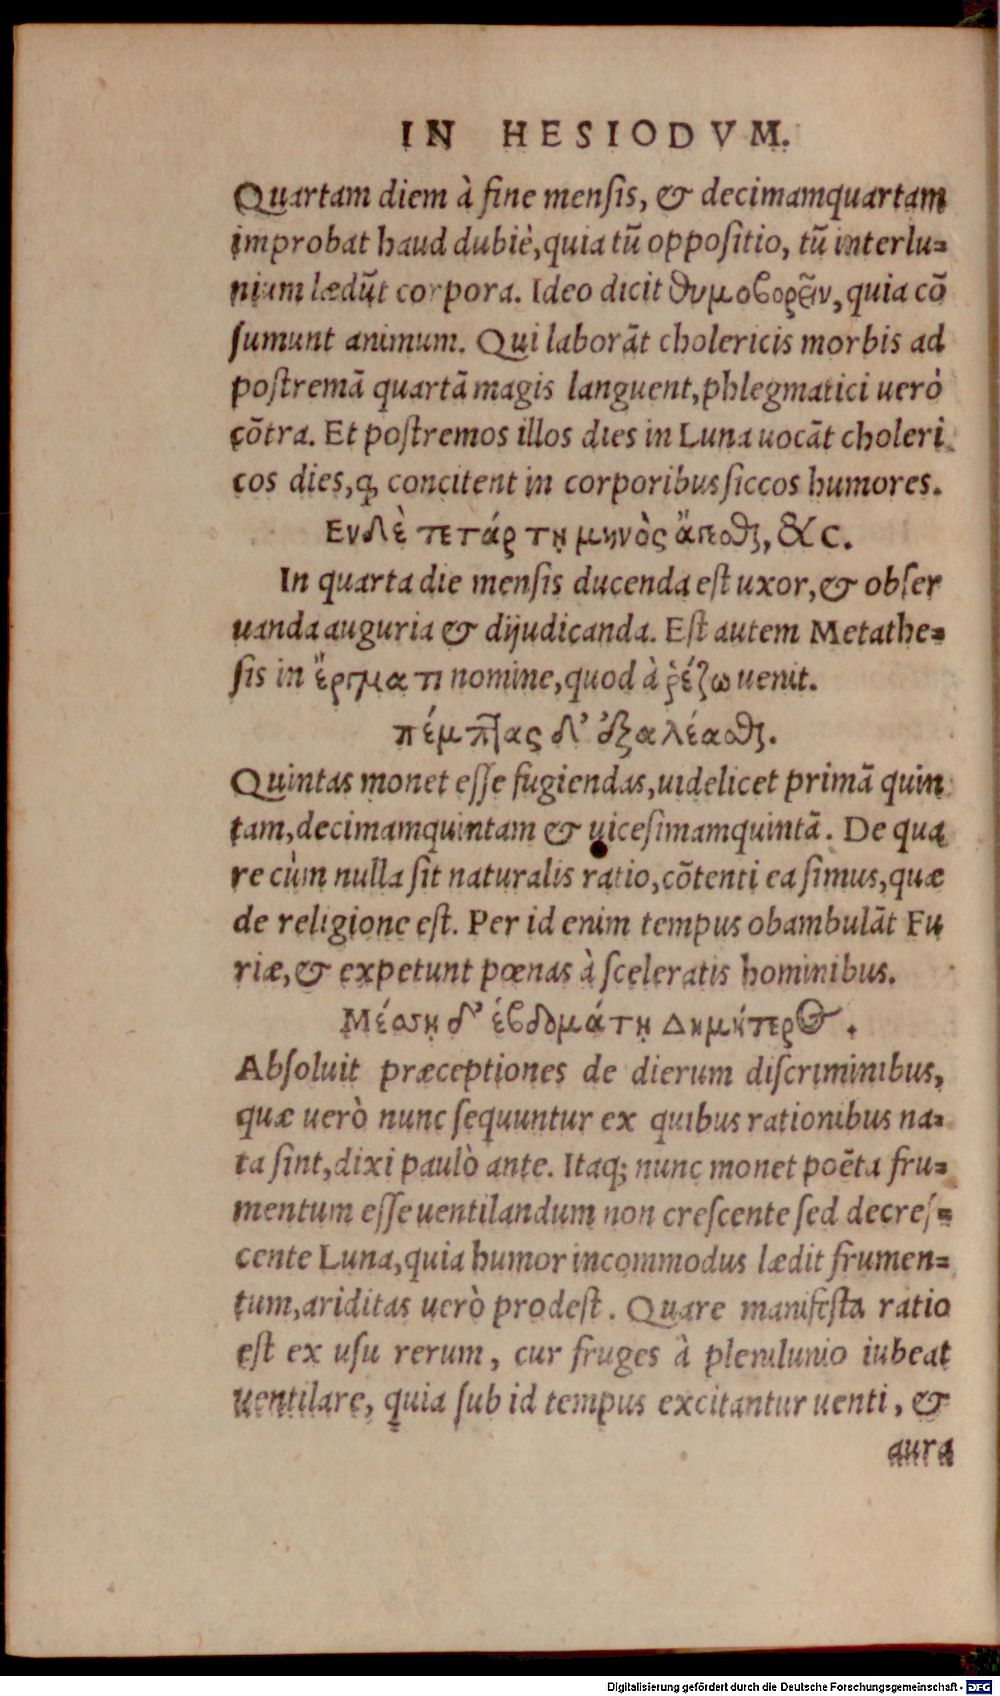 IN HESIODVM.
Quartam diem à fine mensis, & decimamquartam
improbat haud dubiè, quia tũ oppositio, tũ interlu-
nium lædũt corpora. Ideo dicit θυμοβορεῖν, quia cõ
sumunt animum. Qui laborãt cholericis morbis ad
postremã quartã magis languent, phlegmatici uerò
cõtra. Et postremos illos dies in Luna uocãt choleri
cos dies, ꝙ concitent in corporibus siccos humores.
Εν δὲ τετάρτῃ μηνὸς ἄγεσθαι, &c.
In quarta die mensis ducenda est uxor, & obser
uanda auguria & dijudicanda. Est autem Metathe-
sis in ἔργματι nomine, quod à ῥέζω uenit.
πέμπτας δ' ἐξαλέασθαι.
Quintas monet esse fugiendas, uidelicet primã quin
tam, decimamquintam & uicesimamquintã. De qua
re cùm nulla sit naturalis ratio, cõtenti ea simus, quæ
de religione est. Per id enim tempus obambulãt Fu
riæ, & expetunt pœnas à sceleratis hominibus.
Μέσσῃ δ' ἑβδομάτῃ Δημήτερος.
Absoluit præceptiones de dierum discriminibus,
quæ uerò nunc sequuntur ex quibus rationibus na-
ta sint, dixi paulò ante. Itaq; nunc monet poẽta fru-
mentum esse uentilandum non crescente sed decres-
cente Luna, quia humor incommodus lædit frumen-
tum, ariditas uerò prodest. Quare manifesta ratio
est ex usu rerum, cur fruges à plenilunio iubeat
uentilare, quia sub id tempus excitantur uenti, &
aura
Digitalisierung gefördert durch die Deutsche Forschungsgemeinschaft - DFG